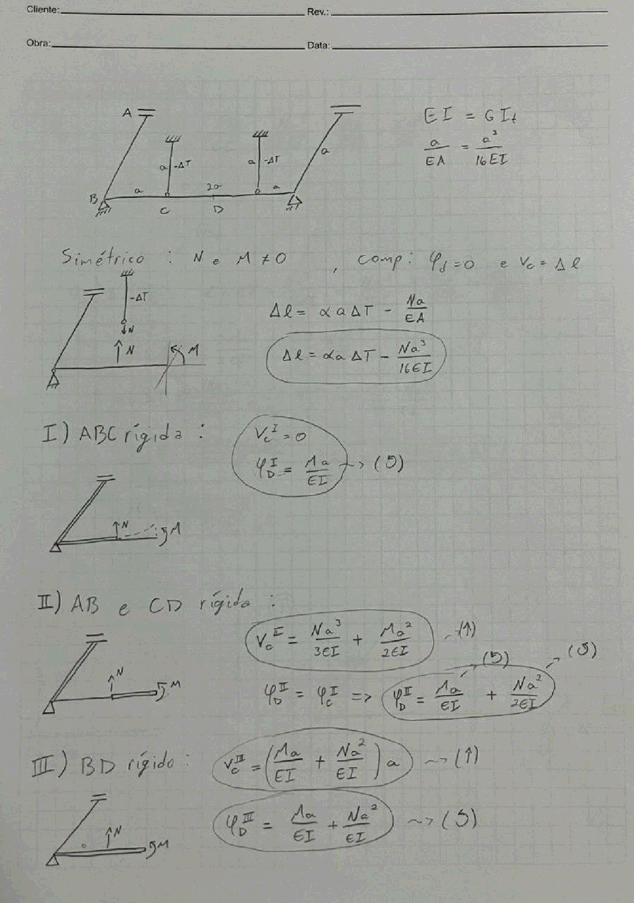 Cliente: Rev.:
Obra: Data:
A
EI = GIt
a/EA = a³/16EI
a -ΔT a -ΔT a
B a C 2a D a
Simétrico : N e M ≠ 0 , comp: φd = 0 e Vc = Δl
-ΔT
N
N M
Δl = αaΔT - Na/EA
Δl = αaΔT - Na³/16EI
I) ABC rígida :
Vc^I = 0
φD^I = Ma/EI ~> (↺)
N M
II) AB e CD rígida :
Vc^I = Na³/3EI + Ma²/2EI (↑)
φD^II = φc^I => φD^II = Ma/EI (↺) + Na²/2EI (↺)
N M
III) BD rígido :
Vc^III = (Ma/EI + Na²/EI) a ~> (↑)
φD^III = Ma/EI + Na²/EI ~> (↺)
N M